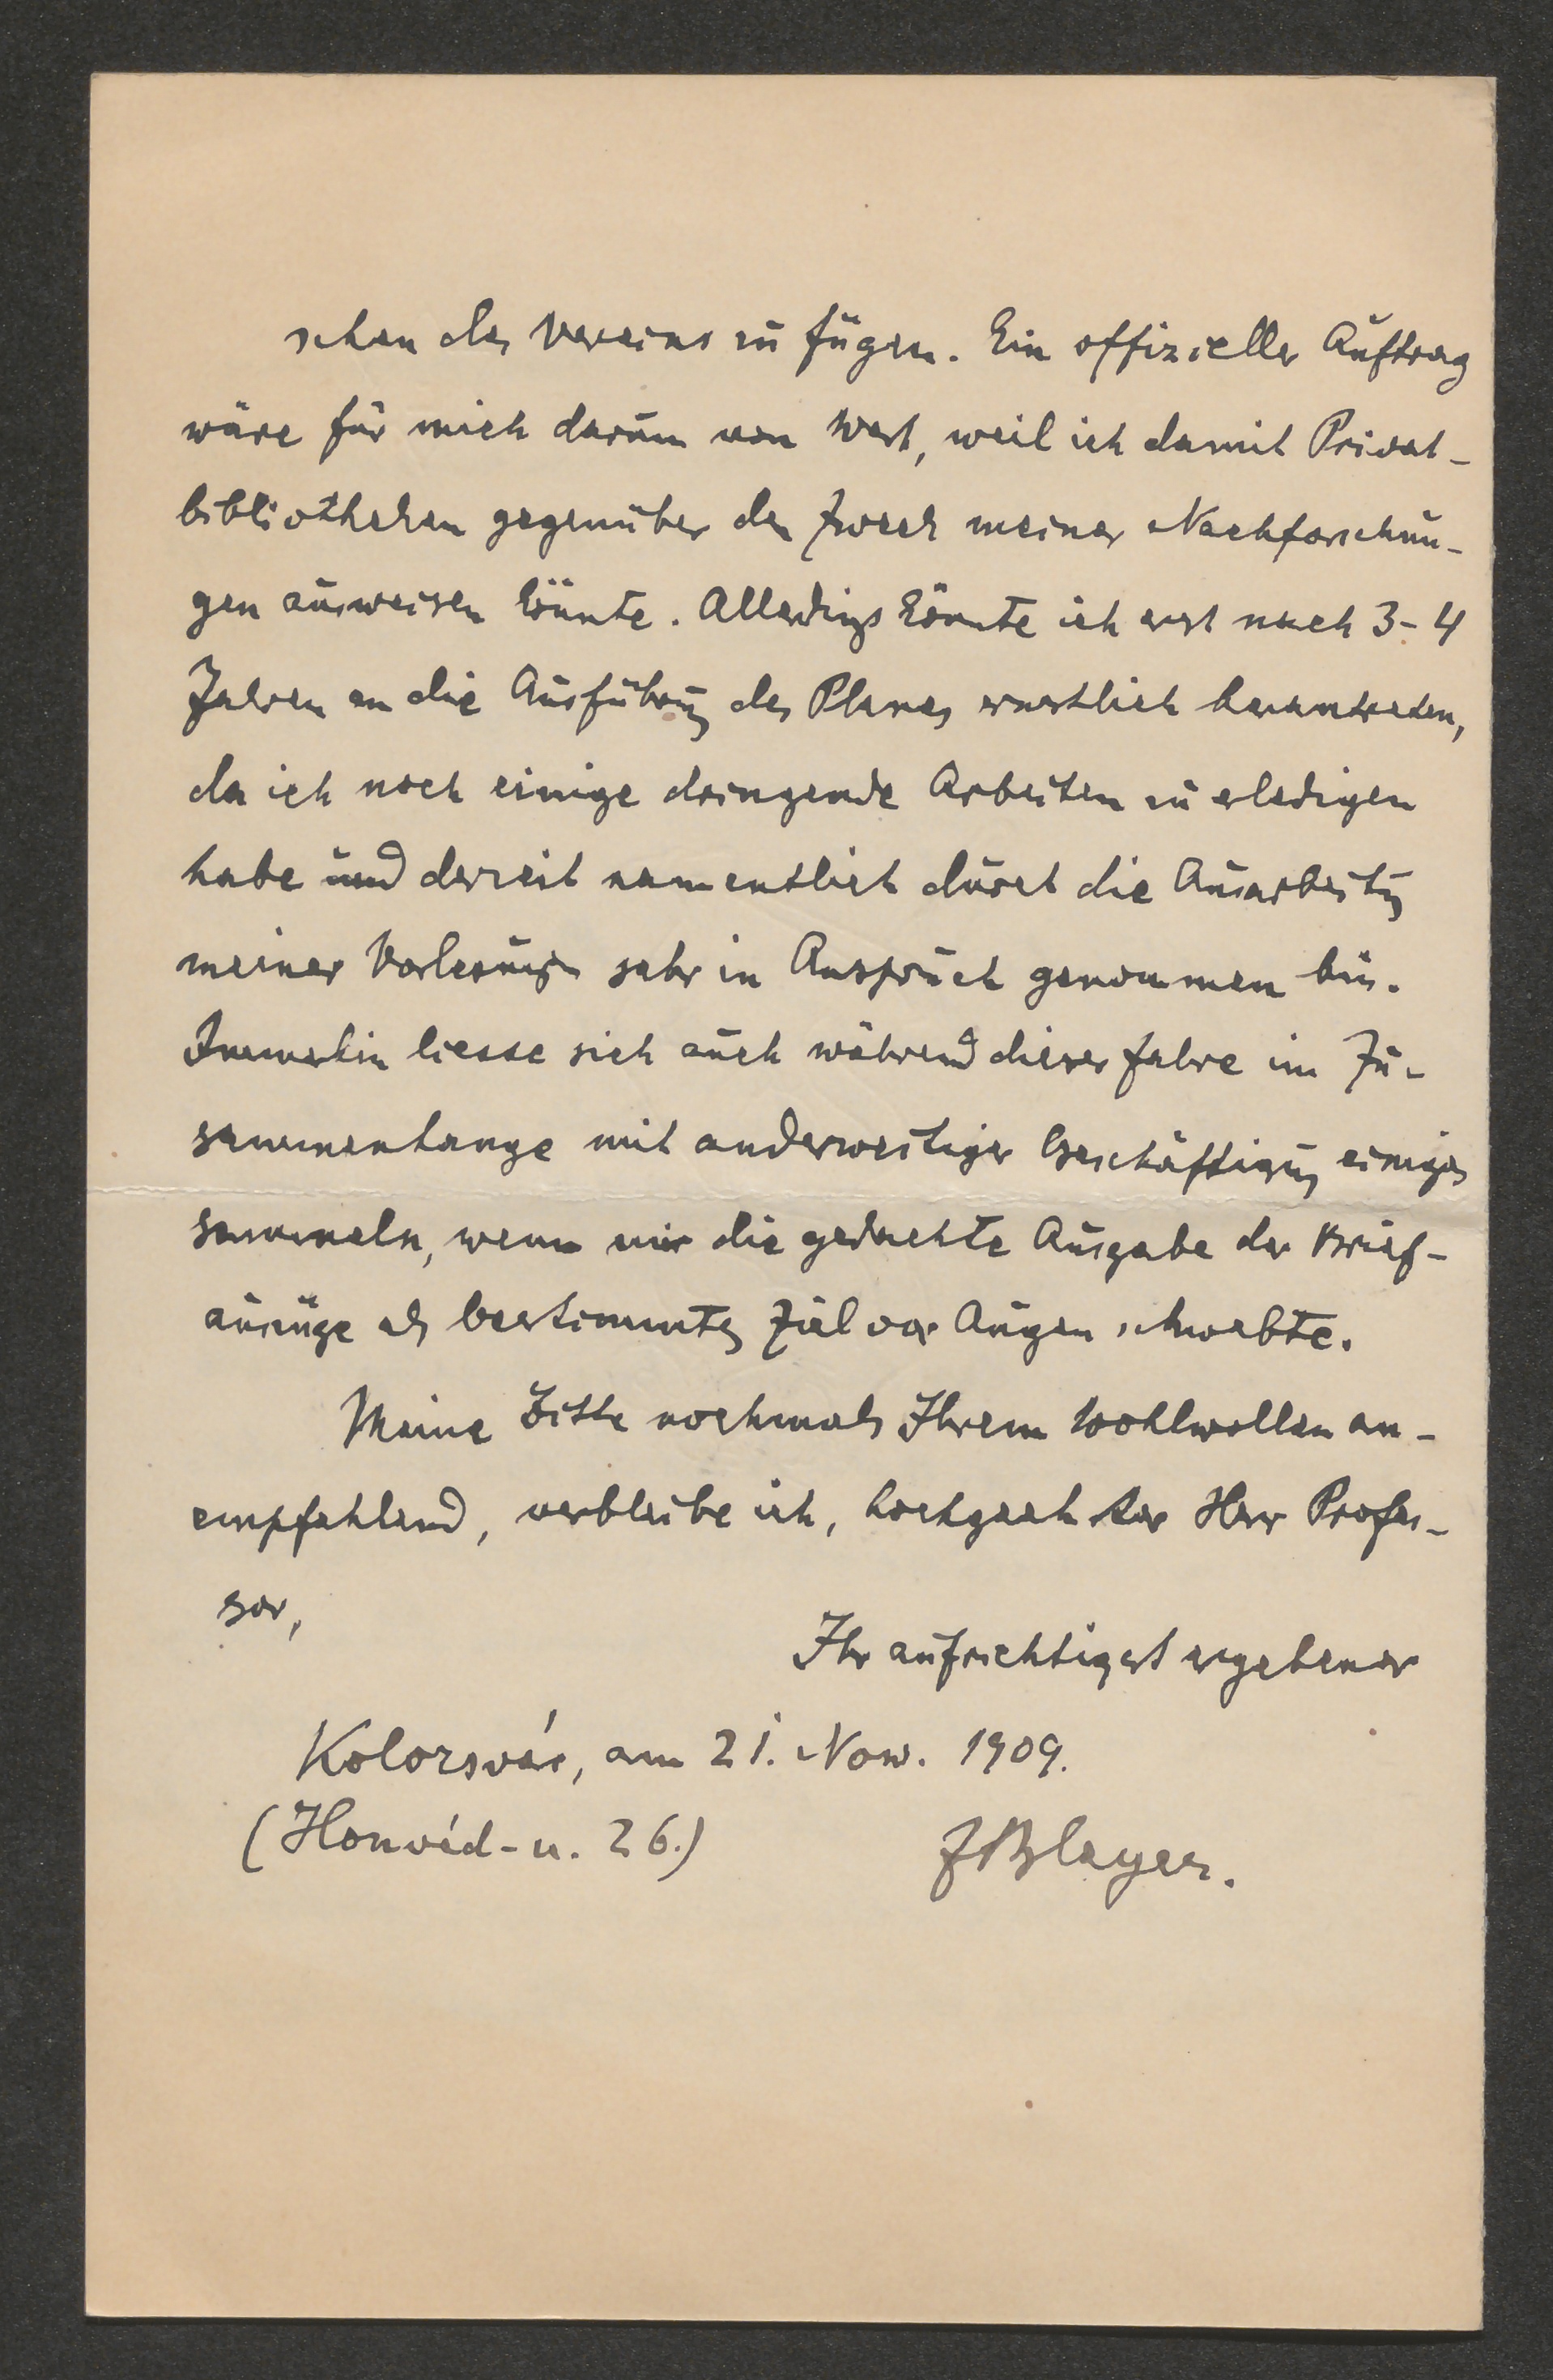 schen des Vereins zu fügen. Ein offizieller Auftrag
wäre für mich darum von Wert, weil ich damit Privat-
bibliotheken gegenüber den Zweck meiner Nachforschun-
gen ausweisen könnte. Allerdings könnte ich erst nach 3-4
Jahren an die Ausführung des Planes ernstlich herantreten,
da ich noch einige dringende Arbeiten zu erledigen
habe und derzeit namentlich durch die Ausarbeitung
meiner Vorlesungen sehr in Anspruch genommen bin.
Immerhin liesse sich auch während dieser Jahre im Zu-
sammenhange mit anderweitiger Beschäftigung einiges
sammeln, wenn mir die gedachte Ausgabe der Brief-
auszüge als bestimmtes Ziel vor Augen schwebte.
Meine Bitte nochmals Ihrem Wohlwollen an-
empfehlend, verbleibe ich, hochgeehrter Herr Profes-
sor,
Ihr aufrichtigst ergebener
Kolozsvár, am 21. Nov. 1909.
(Honvéd-u. 26.)
JBleyer.